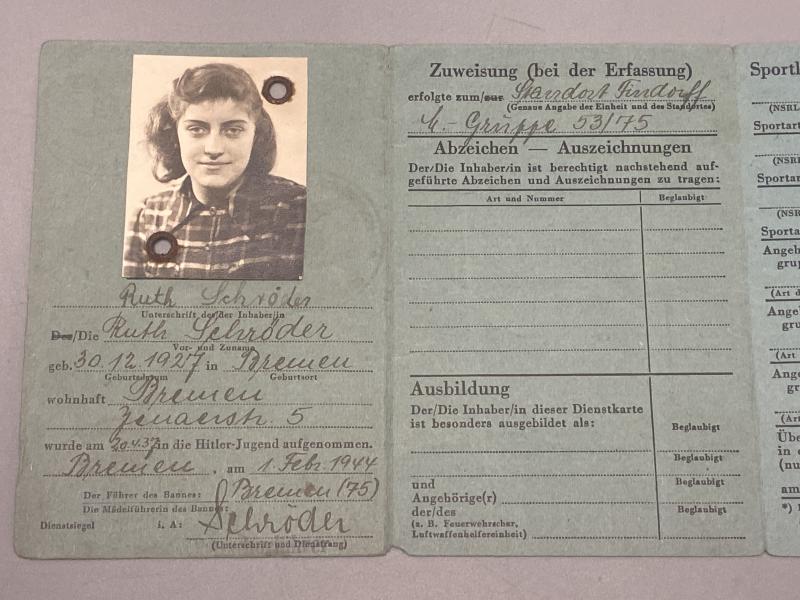 Ruth Schröder
Unterschrift des/der Inhabers/in
Der/Die Ruth Schröder
Vor- und Zuname
geb. 30.12.1927 in Bremen
Geburtsdatum Geburtsort
wohnhaft Bremen
Jenaerstr. 5
wurde am 20.4.37 in die Hitler-Jugend aufgenommen.
Bremen, am 1. Febr. 1944
Der Führer des Bannes: Bremen (75)
Die Mädelführerin des Bannes:
Dienstsiegel i. A: Schröder
(Unterschrift und Dienstrang)
Zuweisung (bei der Erfassung)
erfolgte zum/zur Standort Findorff
(Genaue Angabe der Einheit und des Standortes)
M.-Gruppe 53/75
Abzeichen — Auszeichnungen
Der/Die Inhaber/in ist berechtigt nachstehend auf-
geführte Abzeichen und Auszeichnungen zu tragen:
Art und Nummer Beglaubigt
Ausbildung
Der/Die Inhaber/in dieser Dienstkarte
ist besonders ausgebildet als: Beglaubigt
Beglaubigt
und
Angehörige(r) Beglaubigt
der/des
(z. B. Feuerwehrschar,
Luftwaffenhelfereinheit)
Sportl
(NSRL
Sportart
(NSR
Sportar
(NSR
Sportar
Angeh
grup
(Art d
Ange
gru
(Art
Ange
gru
(Ar
Üb
in
(nu
am
*)